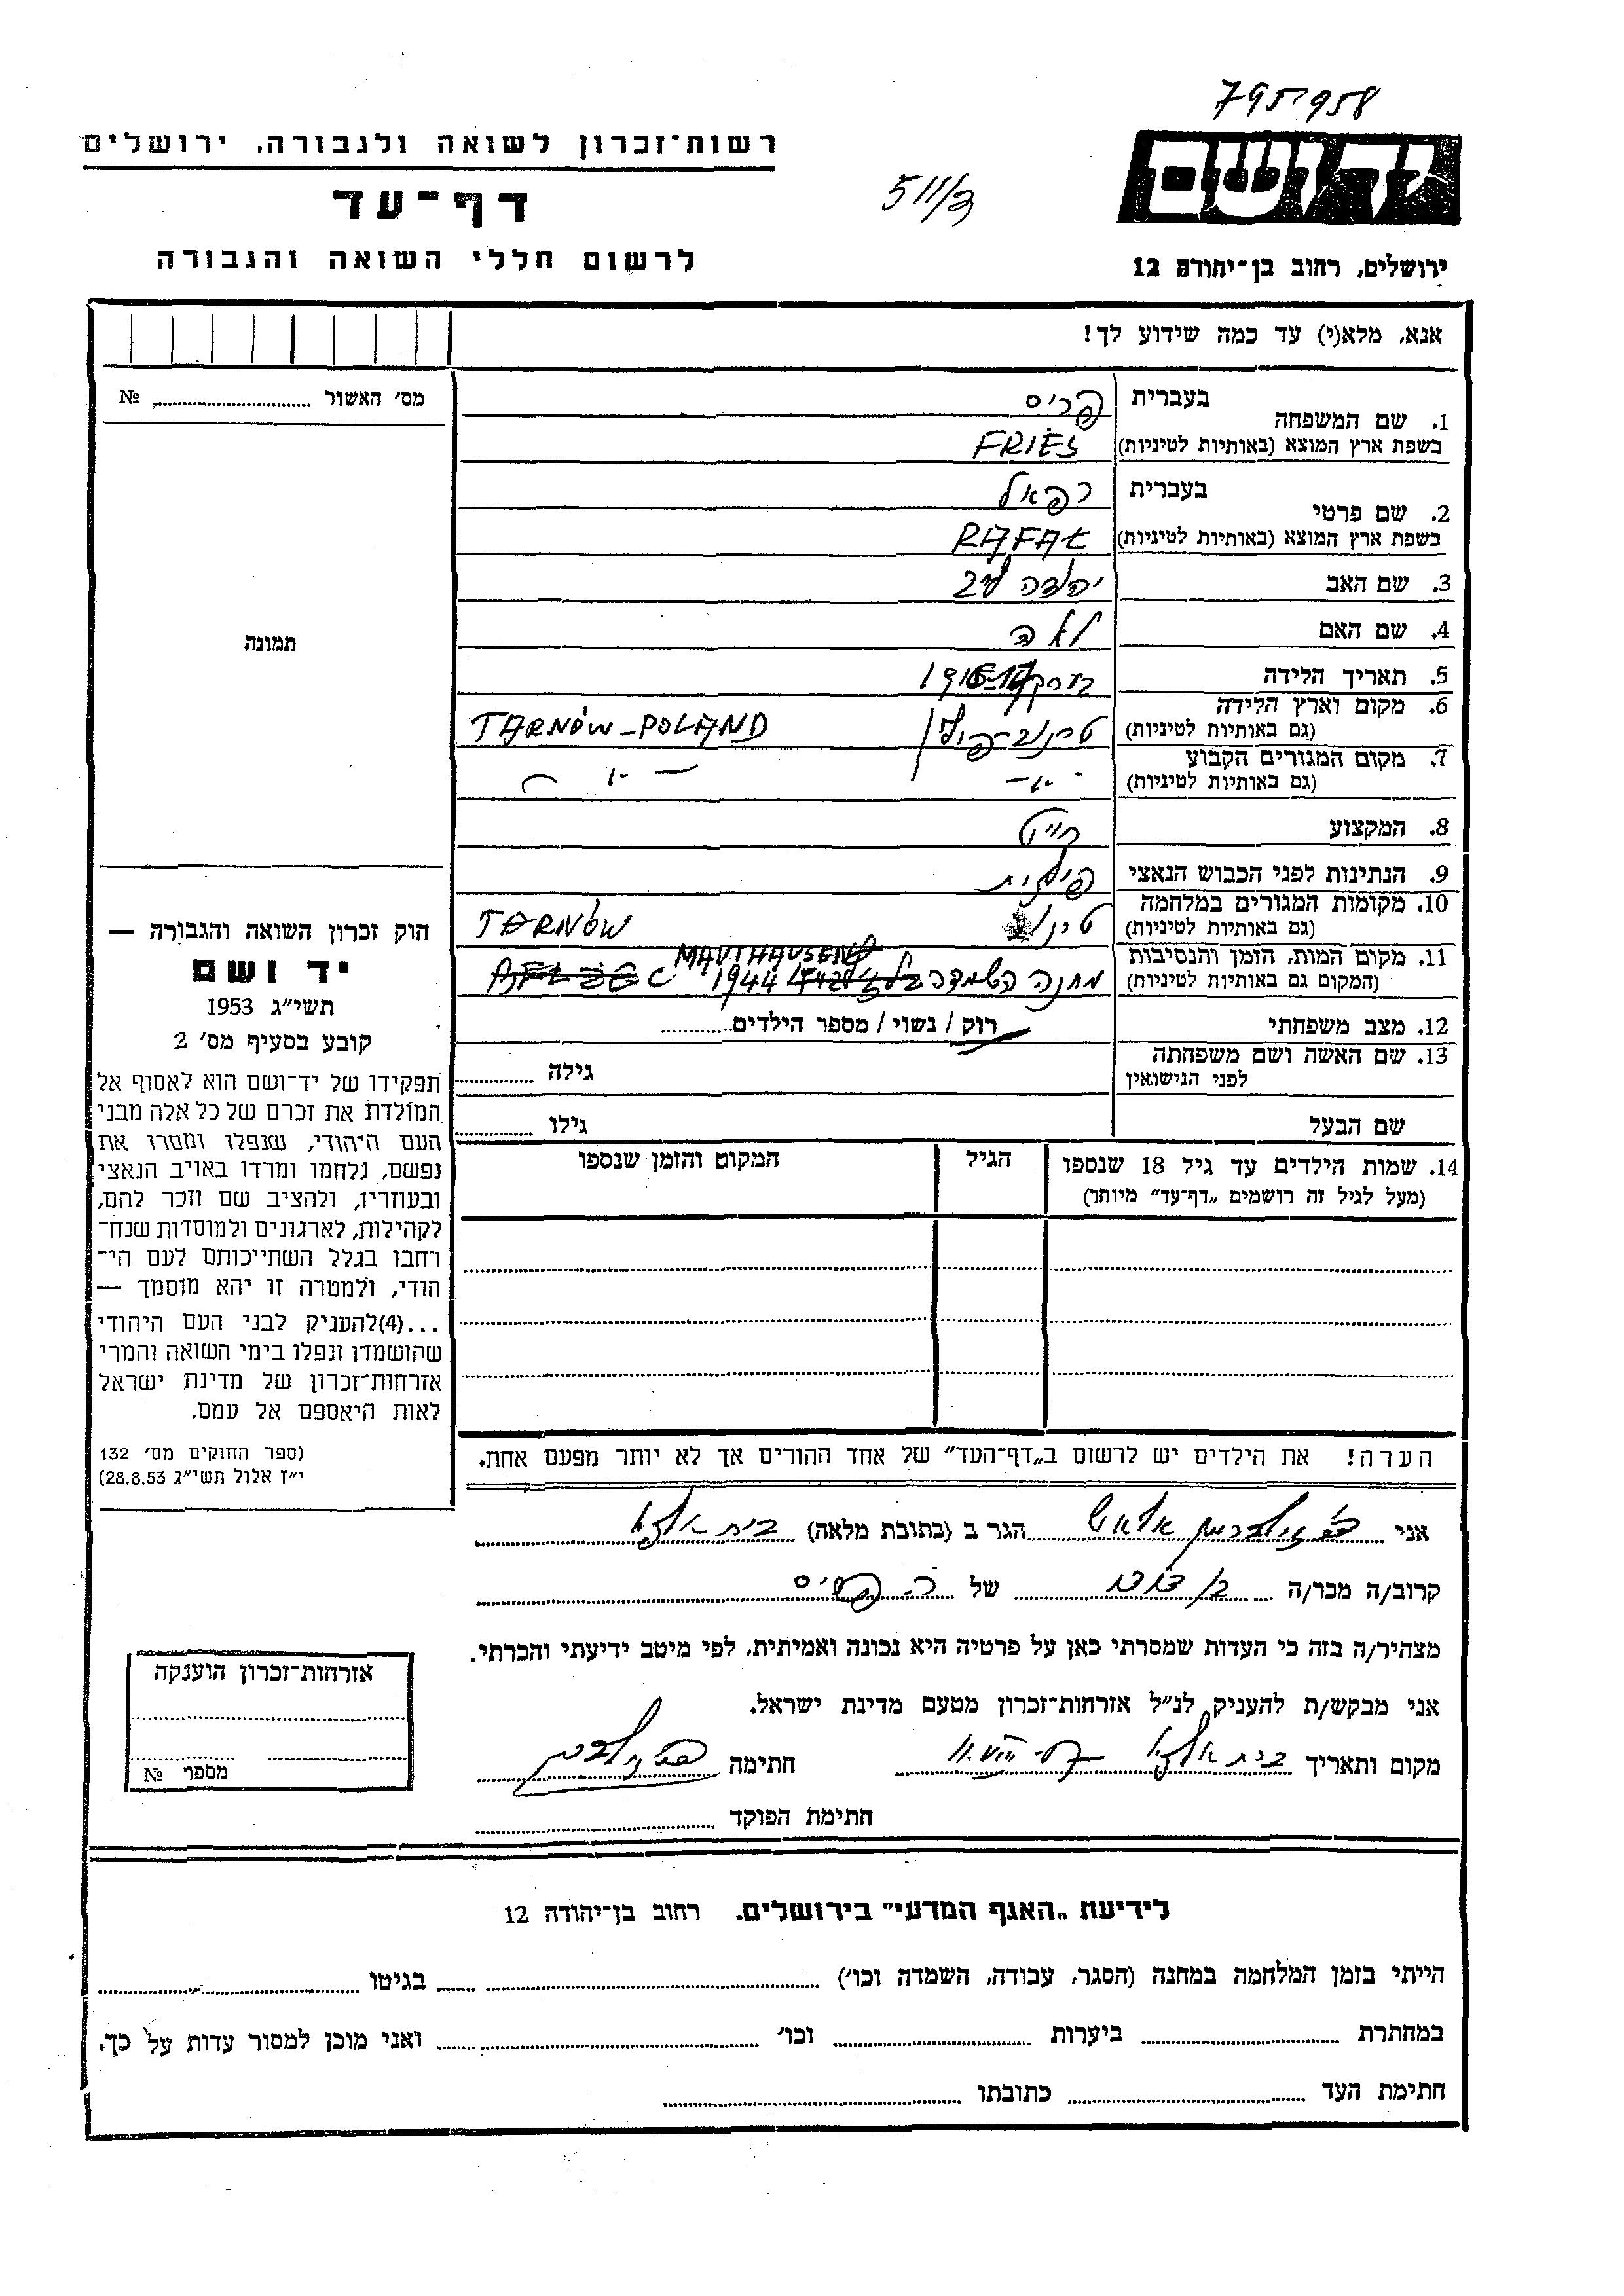 795958
רשות־זכרון לשואה ולגבורה, ירושלים
511/3
יד ושם
דף־עד
לרשום חללי השואה והגבורה
ירושלים, רחוב בן־יהודה 12
אנא, מלא(י) עד כמה שידוע לך!
מס׳ האשור № 
בעברית פריס
1. שם המשפחה
בשפת ארץ המוצא (באותיות לטיניות) FRIES
בעברית רפאל
2. שם פרטי
בשפת ארץ המוצא (באותיות לטיניות) RAFAŁ
3. שם האב יהודה ליב
4. שם האם לאה
5. תאריך הלידה בערך 1916-17
6. מקום וארץ הלידה
(גם באותיות לטיניות) טרנוב-פולין TARNÓW-POLAND
7. מקום המגורים הקבוע
(גם באותיות לטיניות) -"- -"-
8. המקצוע חייט
9. הנתינות לפני הכבוש הנאצי פולנית
10. מקומות המגורים במלחמה
(גם באותיות לטיניות) TARNÓW
11. מקום המות, הזמן והנסיבות MAUTHAUSEN
(המקום גם באותיות לטיניות) מחנה השמדה 1944
12. מצב משפחתי רווק / נשוי / מספר הילדים
13. שם האשה ושם משפחתה
לפני הנישואין גילה
שם הבעל גילו
14. שמות הילדים עד גיל 18 שנספו הגיל המקום והזמן שנספו
(מעל לגיל זה רושמים „דף־עד״ מיוחד)
הערה! את הילדים יש לרשום ב„דף־העד״ של אחד ההורים אך לא יותר מפעם אחת.
תמונה
חוק זכרון השואה והגבורה —
יד ושם
תשי״ג 1953
קובע בסעיף מס׳ 2
תפקידו של יד־ושם הוא לאסוף אל
המולדת את זכרם של כל אלה מבני
העם היהודי, שנפלו ומסרו את
נפשם, נלחמו ומרדו באויב הנאצי
ובעוזריו, ולהציב שם וזכר להם,
לקהילות, לארגונים ולמוסדות שנח־
רחבו בגלל השתייכותם לעם הי־
הודי, ולמטרה זו יהא מוסמך —
...(4)להעניק לבני העם היהודי
שהושמדו ונפלו בימי השואה והמרי
אזרחות־זכרון של מדינת ישראל
לאות היאספם אל עמם.
(ספר החוקים מס׳ 132
י״ז אלול תשי״ג 28.8.53)
אני הגר ב (כתובת מלאה) בית
קרוב/ה מכר/ה בן דוד של
מצהיר/ה בזה כי העדות שמסרתי כאן על פרטיה היא נכונה ואמיתית, לפי מיטב ידיעתי והכרתי.
אני מבקש/ת להעניק לנ״ל אזרחות־זכרון מטעם מדינת ישראל.
מקום ותאריך בית חתימה
חתימת הפוקד
אזרחות־זכרון הוענקה
מספר №
לידיעת „האגף המדעי״ בירושלים, רחוב בן־יהודה 12
הייתי בזמן המלחמה במחנה (הסגר, עבודה, השמדה וכו׳) בגיטו
במחתרת ביערות וכו׳ ואני מוכן למסור עדות על כך.
חתימת העד כתובתו